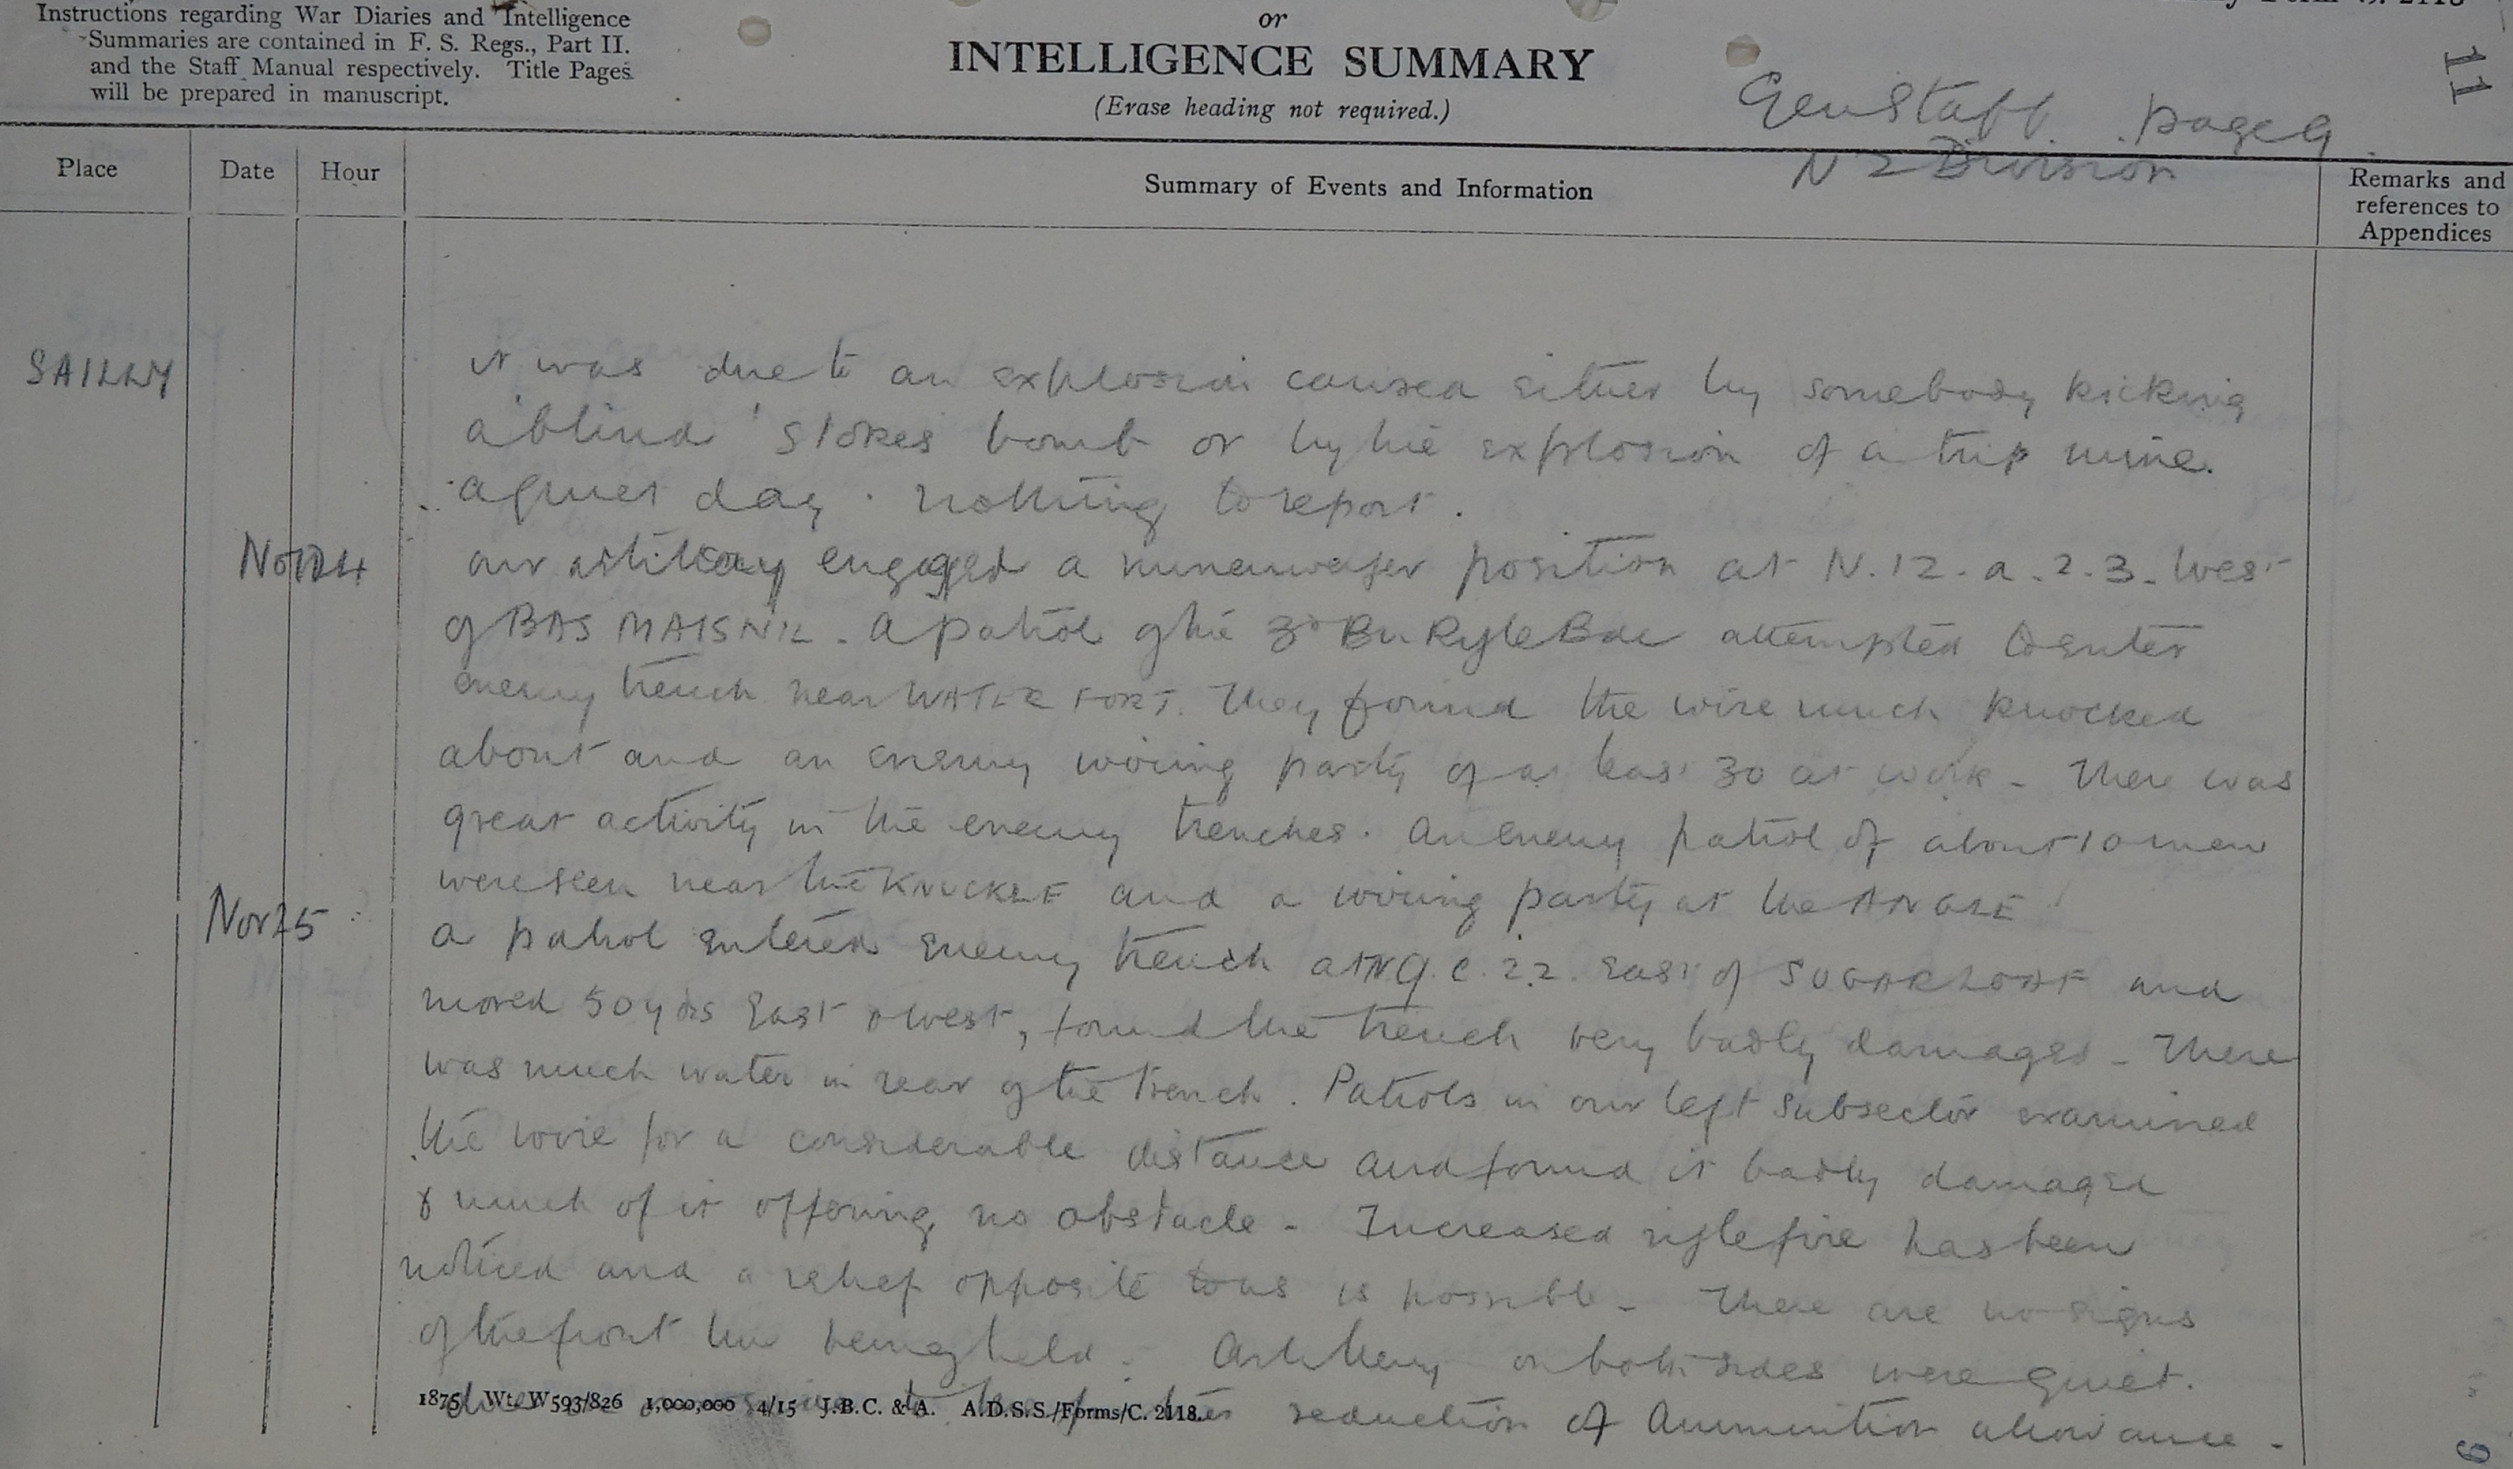 Instructions regarding War Diaries and Intelligence
Summaries are contained in F. S. Regs., Part II.
and the Staff Manual respectively. Title Pages
will be prepared in manuscript.
or
INTELLIGENCE SUMMARY
(Erase heading not required.)
GenStaff page 9
N Z Division
11
Place
Date
Hour
Summary of Events and Information
Remarks and
references to
Appendices
SAILLY
it was due to an explosion caused either by somebody kicking
a 'blind' Stokes bomb or by the explosion of a trip mine.
a quiet day. Nothing to report.
Nov 24
our artillery engaged a minenwerfer position at N.12.a.2.3. West
of BAS MAISNIL. A patrol of the 3d Bn Rifle Bde attempted to enter
enemy trench near WATER FORT. They found the wire much knocked
about and an enemy wiring party of at least 30 at work. There was
great activity in the enemy trenches. An enemy patrol of about 10 men
were seen near the KNUCKLE and a wiring party at the ANGLE
Nov 25
a patrol entered enemy trench at N 9.c.2.2. East of SUGARLOAF and
moved 50 yds East & West, found the trench very badly damaged. There
was much water in rear of the trench. Patrols in our left subsector examined
the wire for a considerable distance and found it badly damaged
& much of it offering no obstacle. Increased rifle fire has been
noticed and a relief opposite to us is possible. There are no signs
of the front line being held. Artillery on both sides were quiet.
reduction of ammunition allowance.
1875 Wt. W593/826 1,000,000 4/15 J.B.C. & A. A.D.S.S./Forms/C. 2118.